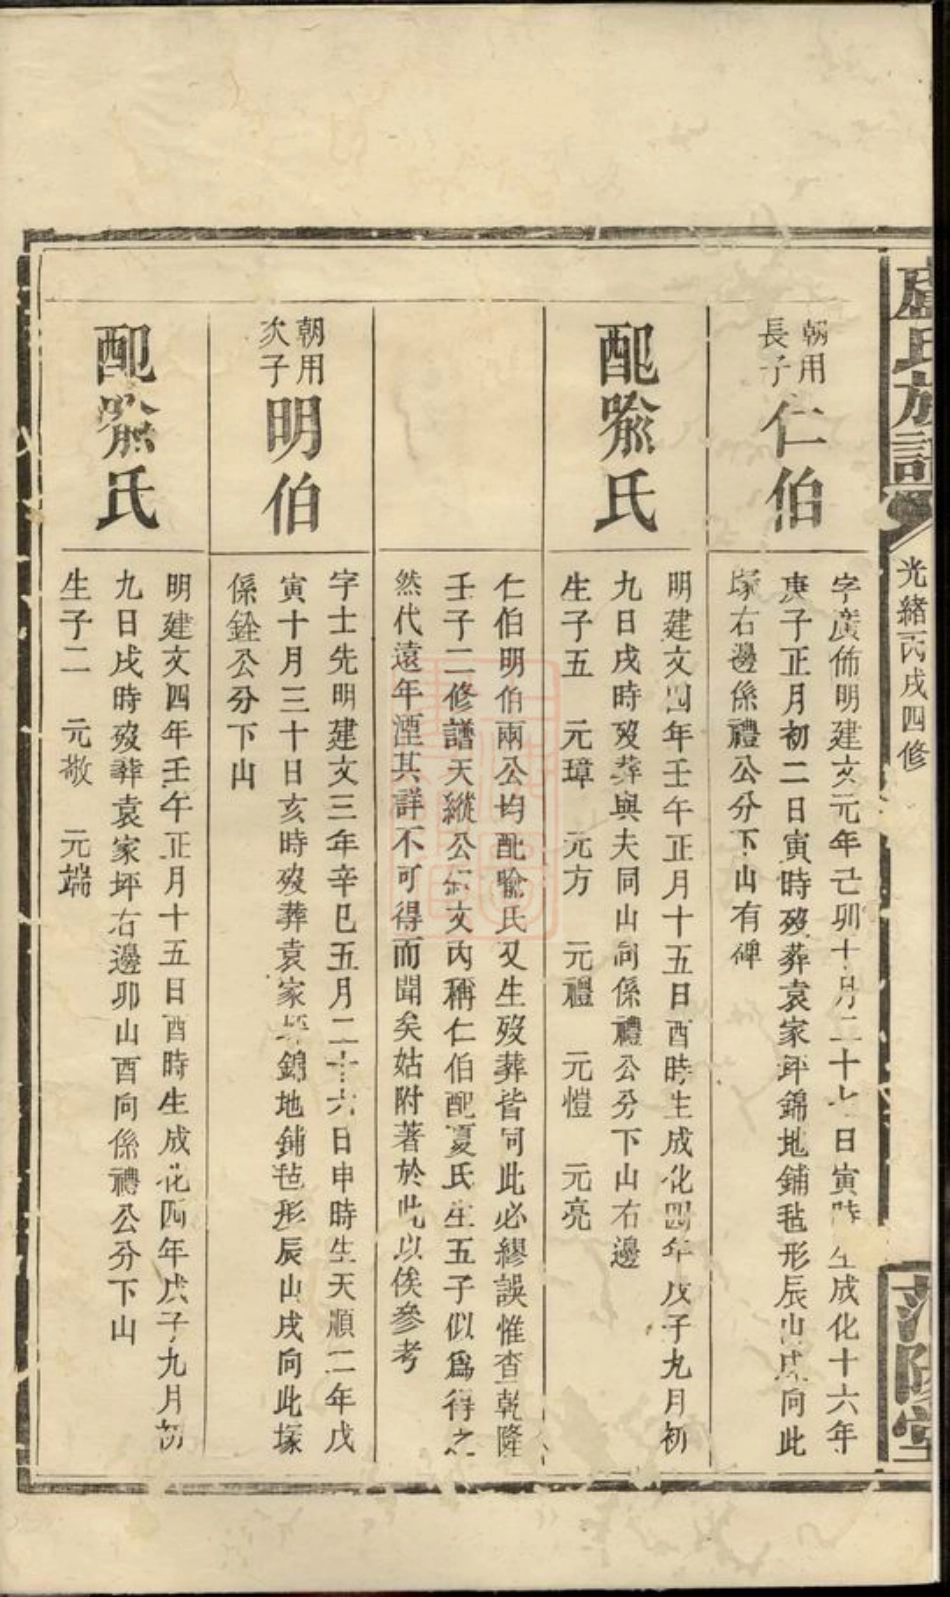 盧氏族譜
光緒丙戌四修
范陽堂
朝用
長子
仁伯
字廣佈明建文元年己卯十月二十七日寅時生成化十六年
庚子正月初二日寅時歿葬袁家坪錦地鋪毡形辰山戌向此
塚右邊係禮公分下山有碑
配喻氏
明建文四年壬午正月十五日酉時生成化四年戊子九月初
九日戌時歿葬與夫同山向係禮公分下山右邊
生子五 元璋 元方 元禮 元愷 元亮
仁伯明伯兩公均配喻氏又生歿葬皆同此必繆誤惟查乾隆
壬子二修譜天縱公文內稱仁伯配夏氏生五子似爲得之
然代遠年湮其詳不可得而聞矣姑附著於此以俟參考
朝用
次子
明伯
字士先明建文三年辛巳五月二十六日申時生天順二年戊
寅十月三十日亥時歿葬袁家坪錦地鋪毡形辰山戌向此塚
係銓公分下山
配喻氏
明建文四年壬午正月十五日酉時生成化四年戊子九月初
九日戌時歿葬袁家坪右邊卯山酉向係禮公分下山
生子二 元敬 元端